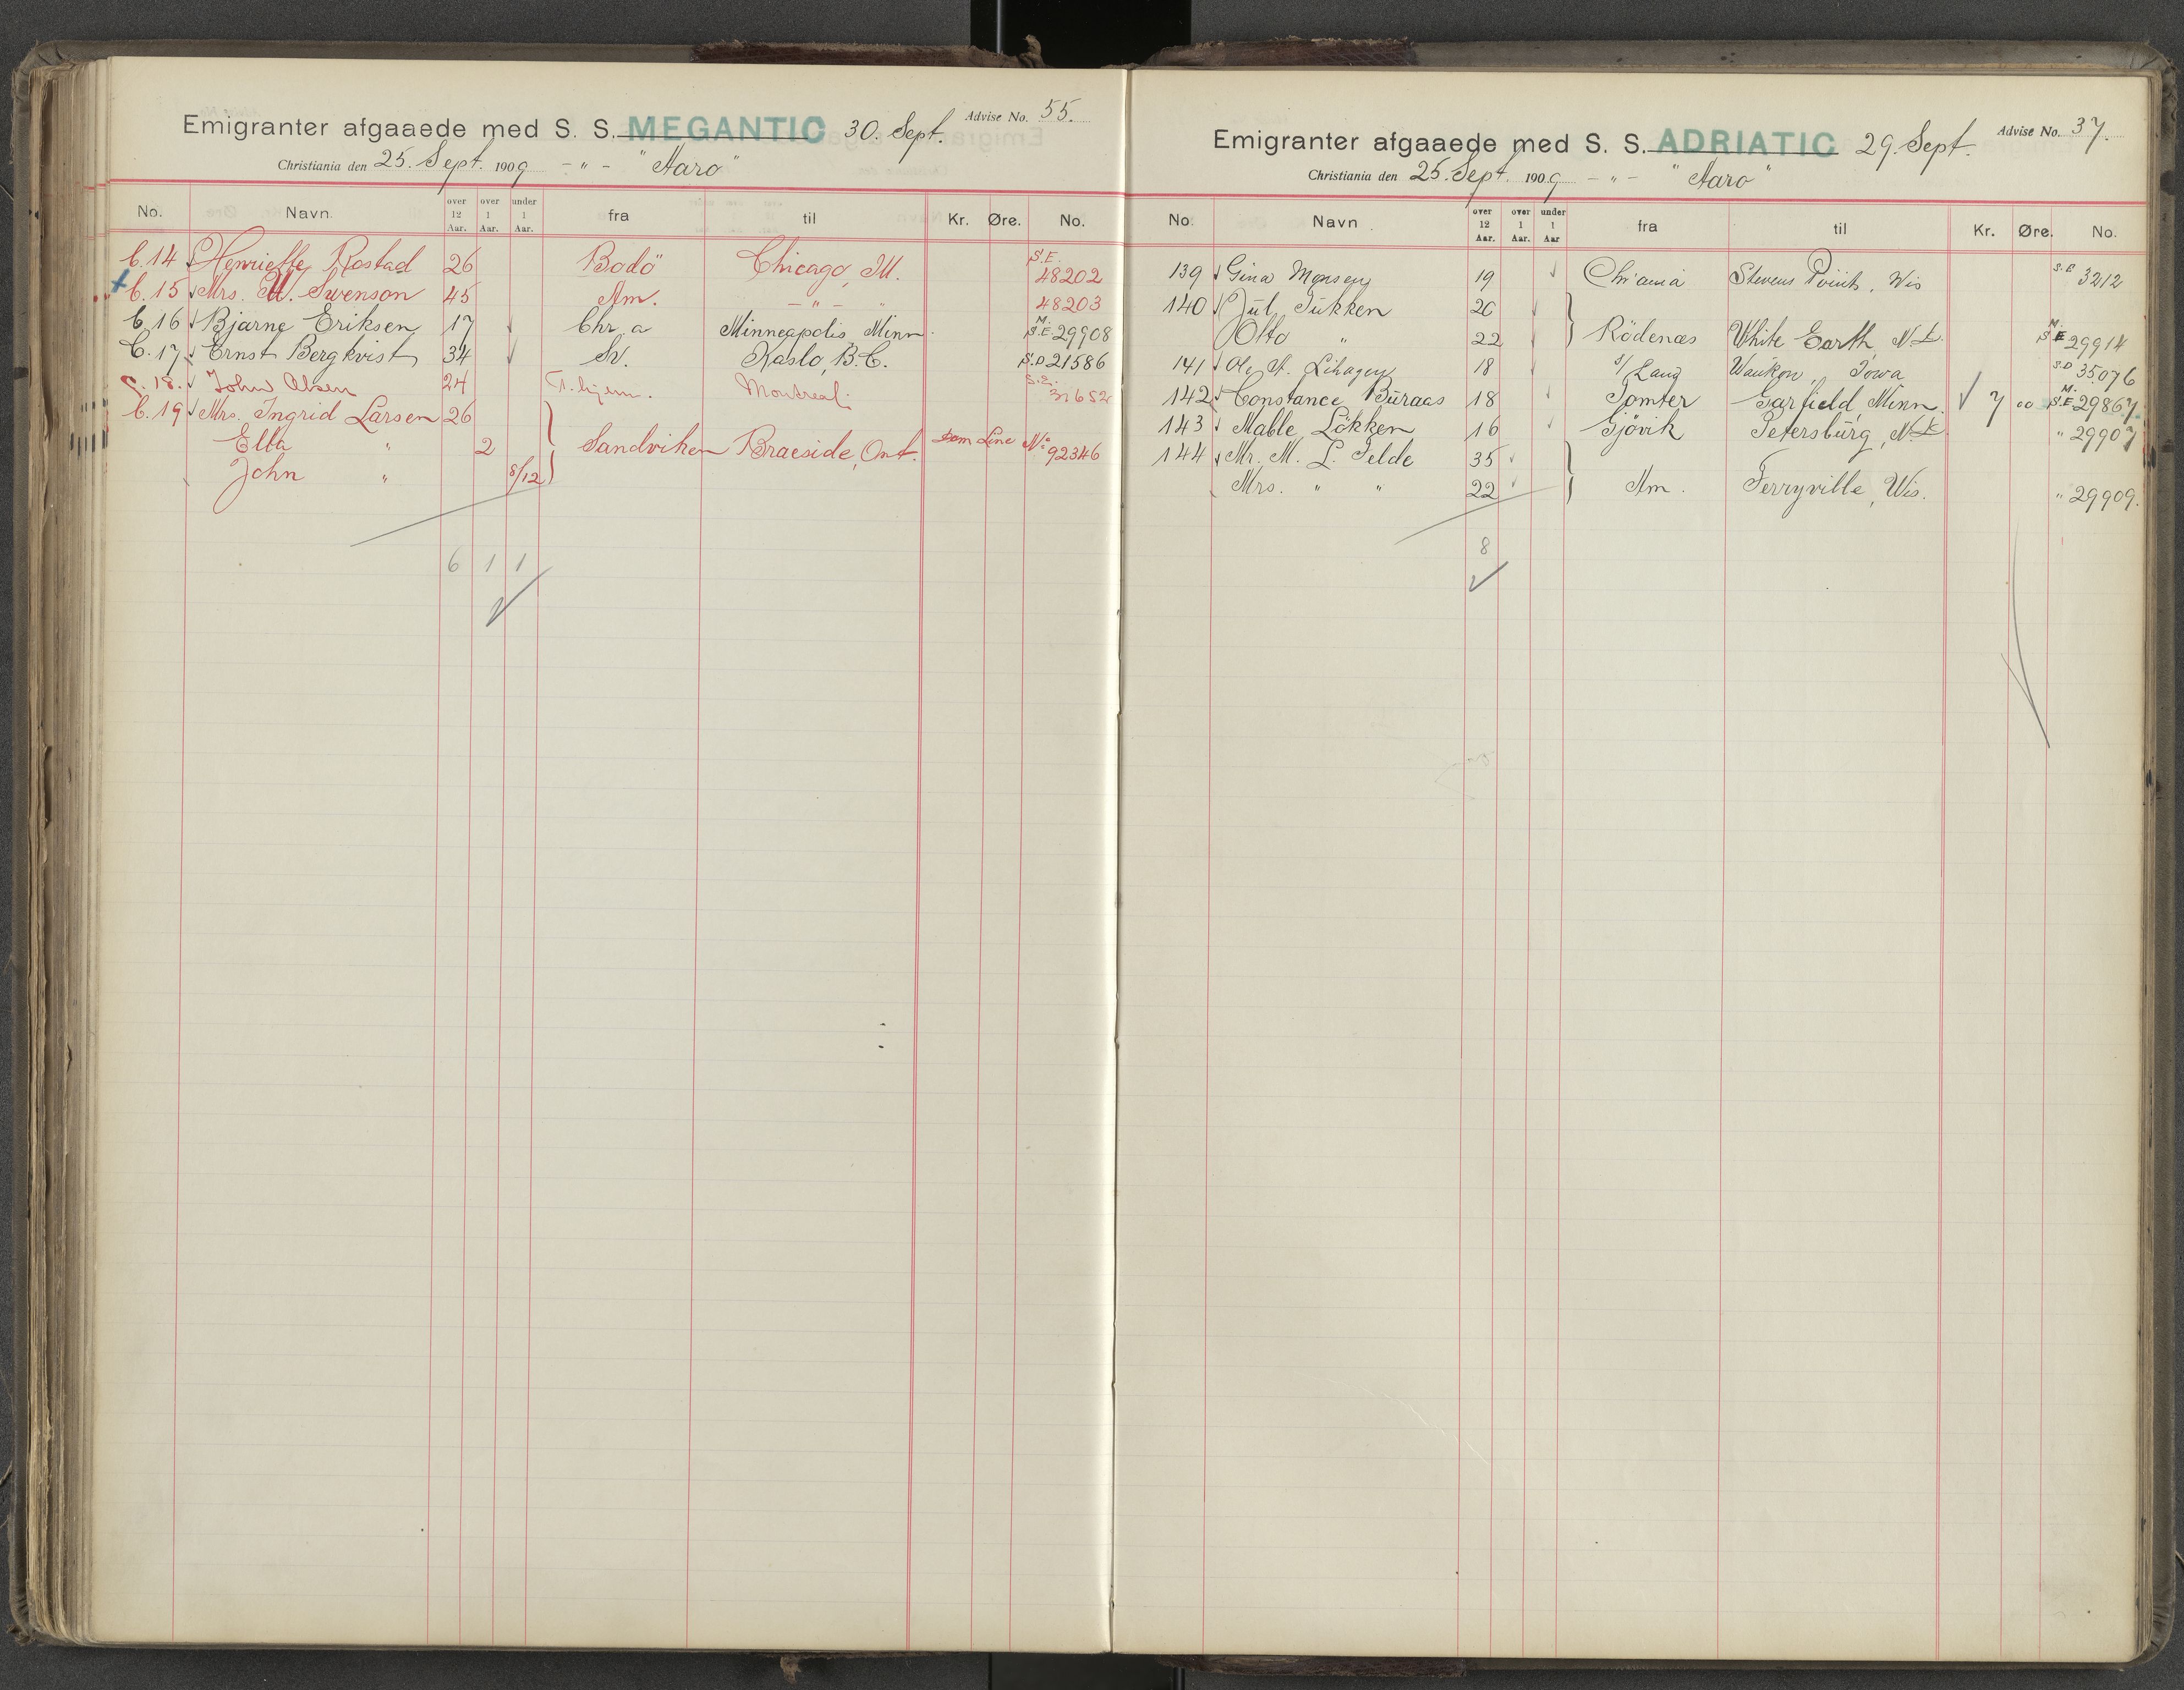 Emigranter afgaaede med S. S. MEGANTIC 30. Sept. Advise No. 55.
Christiania den 25. Sept. 1909 - " - "Aaro"
No. Navn. over 12 Aar. over 1 Aar. under 1 Aar. fra til Kr. Øre. No.
C. 14 Henriette Rostad 26 Bodö Chicago, Ill. S.E. 48202
C. 15 Mrs. M. Swenson 45 Am. - " - " 48203
C. 16 Bjarne Eriksen 17 Chr.a Minneapolis Minn. M. S.E. 29908
C. 17 Ernst Bergkvist 34 Sv. Kaslo, B.C. S.D 21586
C. 18. John Olsen 24 T. hjem. Montreal. S.E. 31652
C. 19 Mrs. Ingrid Larsen 26
Ella " 2 Sandviken Braeside, Ont. Dom Line No 92346
John " 8/12
6 1 1
Emigranter afgaaede med S. S. ADRIATIC 29. Sept. Advise No. 37.
Christiania den 25. Sept. 1909 - " - "Aaro"
No. Navn. over 12 Aar. over 1 Aar. under 1 Aar fra til Kr. Øre. No.
139 Gina Monsen 19 Chr'ania Stevens Point, Wis S.E 3212
140 Jul. Tukken 20
Otto " 22 Rödenæs White Earth, N.D. M. S.E 29914
141 Ole A. Lihagen 18 s/ Land Waukon, Iowa S.D 35076
142 Constance Buraas 18 Tomter Garfield, Minn. 7 00 M. S.E. 29867.
143 Mable Lökken 16 Gjövik Petersburg, N.D. " 29907
144 Mr. M. L. Telde 35
Mrs. " " 22 Am. Ferryville, Wis. " 29909.
8